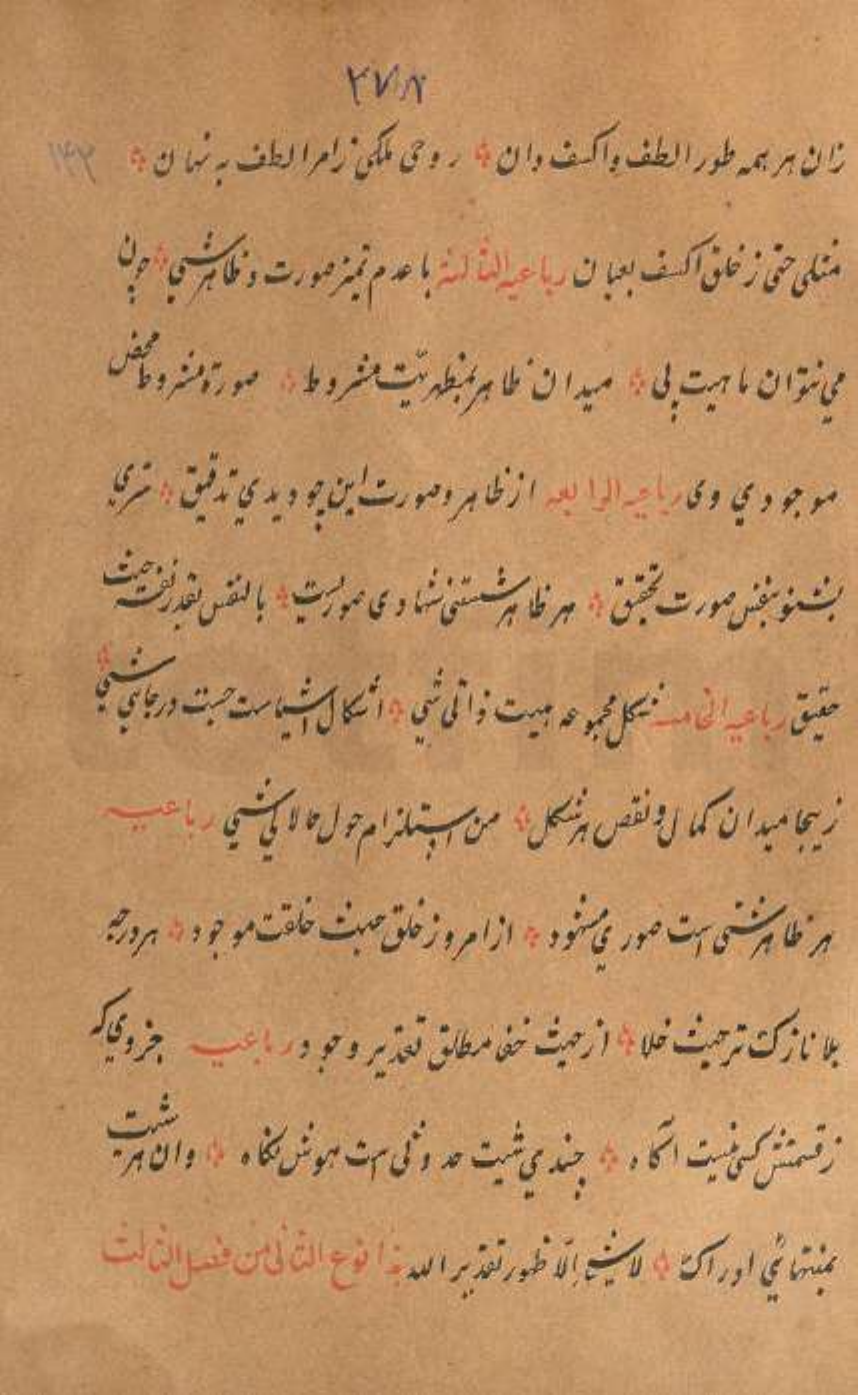 ۳۷۸
۱۴۳
زان هر همه طور الطف و اکسف دان روحی ملکی زامر الطف به نهان
مثلی حتی ز خلق اکسف بعیان رباعیه الثالثة با عدم تمیز صورت و ظاهر شیی چون
می نتوان ماهیت پی میدان ظاهر بمظهریت مشروط صورة مشروط محض
موجودی وی رباعیه الرابعه از ظاهر و صورت این چو دیدی تدقیق سری
بشنو بنفس صورت تحقیق هر ظاهر صورت بالنفس بقدر نفسه حیث
حقیق رباعیه الخامسه شکل مجموعه هیت ذاتی شیی اشکال اشیاست حیث در جایی شیی
زینجا میدان کمال و نقص هر شکل من استلزام حول حالا کی شیی رباعیه
هر ظاهر شیی است صوری مشهود از امر و ز خلق حیث خلقت موجود هر درجه
بلا نازک تر حیث خلا از حیث خفا مطلق تقدیر وجود رباعیه جزوی که
ز قسمتش کسی نیست آگاه چندی شیت حدوثی است هوش نگاه وان هر شیت
بمنتهائی ادراک لا شیئ الا ظهور تقدیر الله هذا نوع الثانی من فصل الثالث